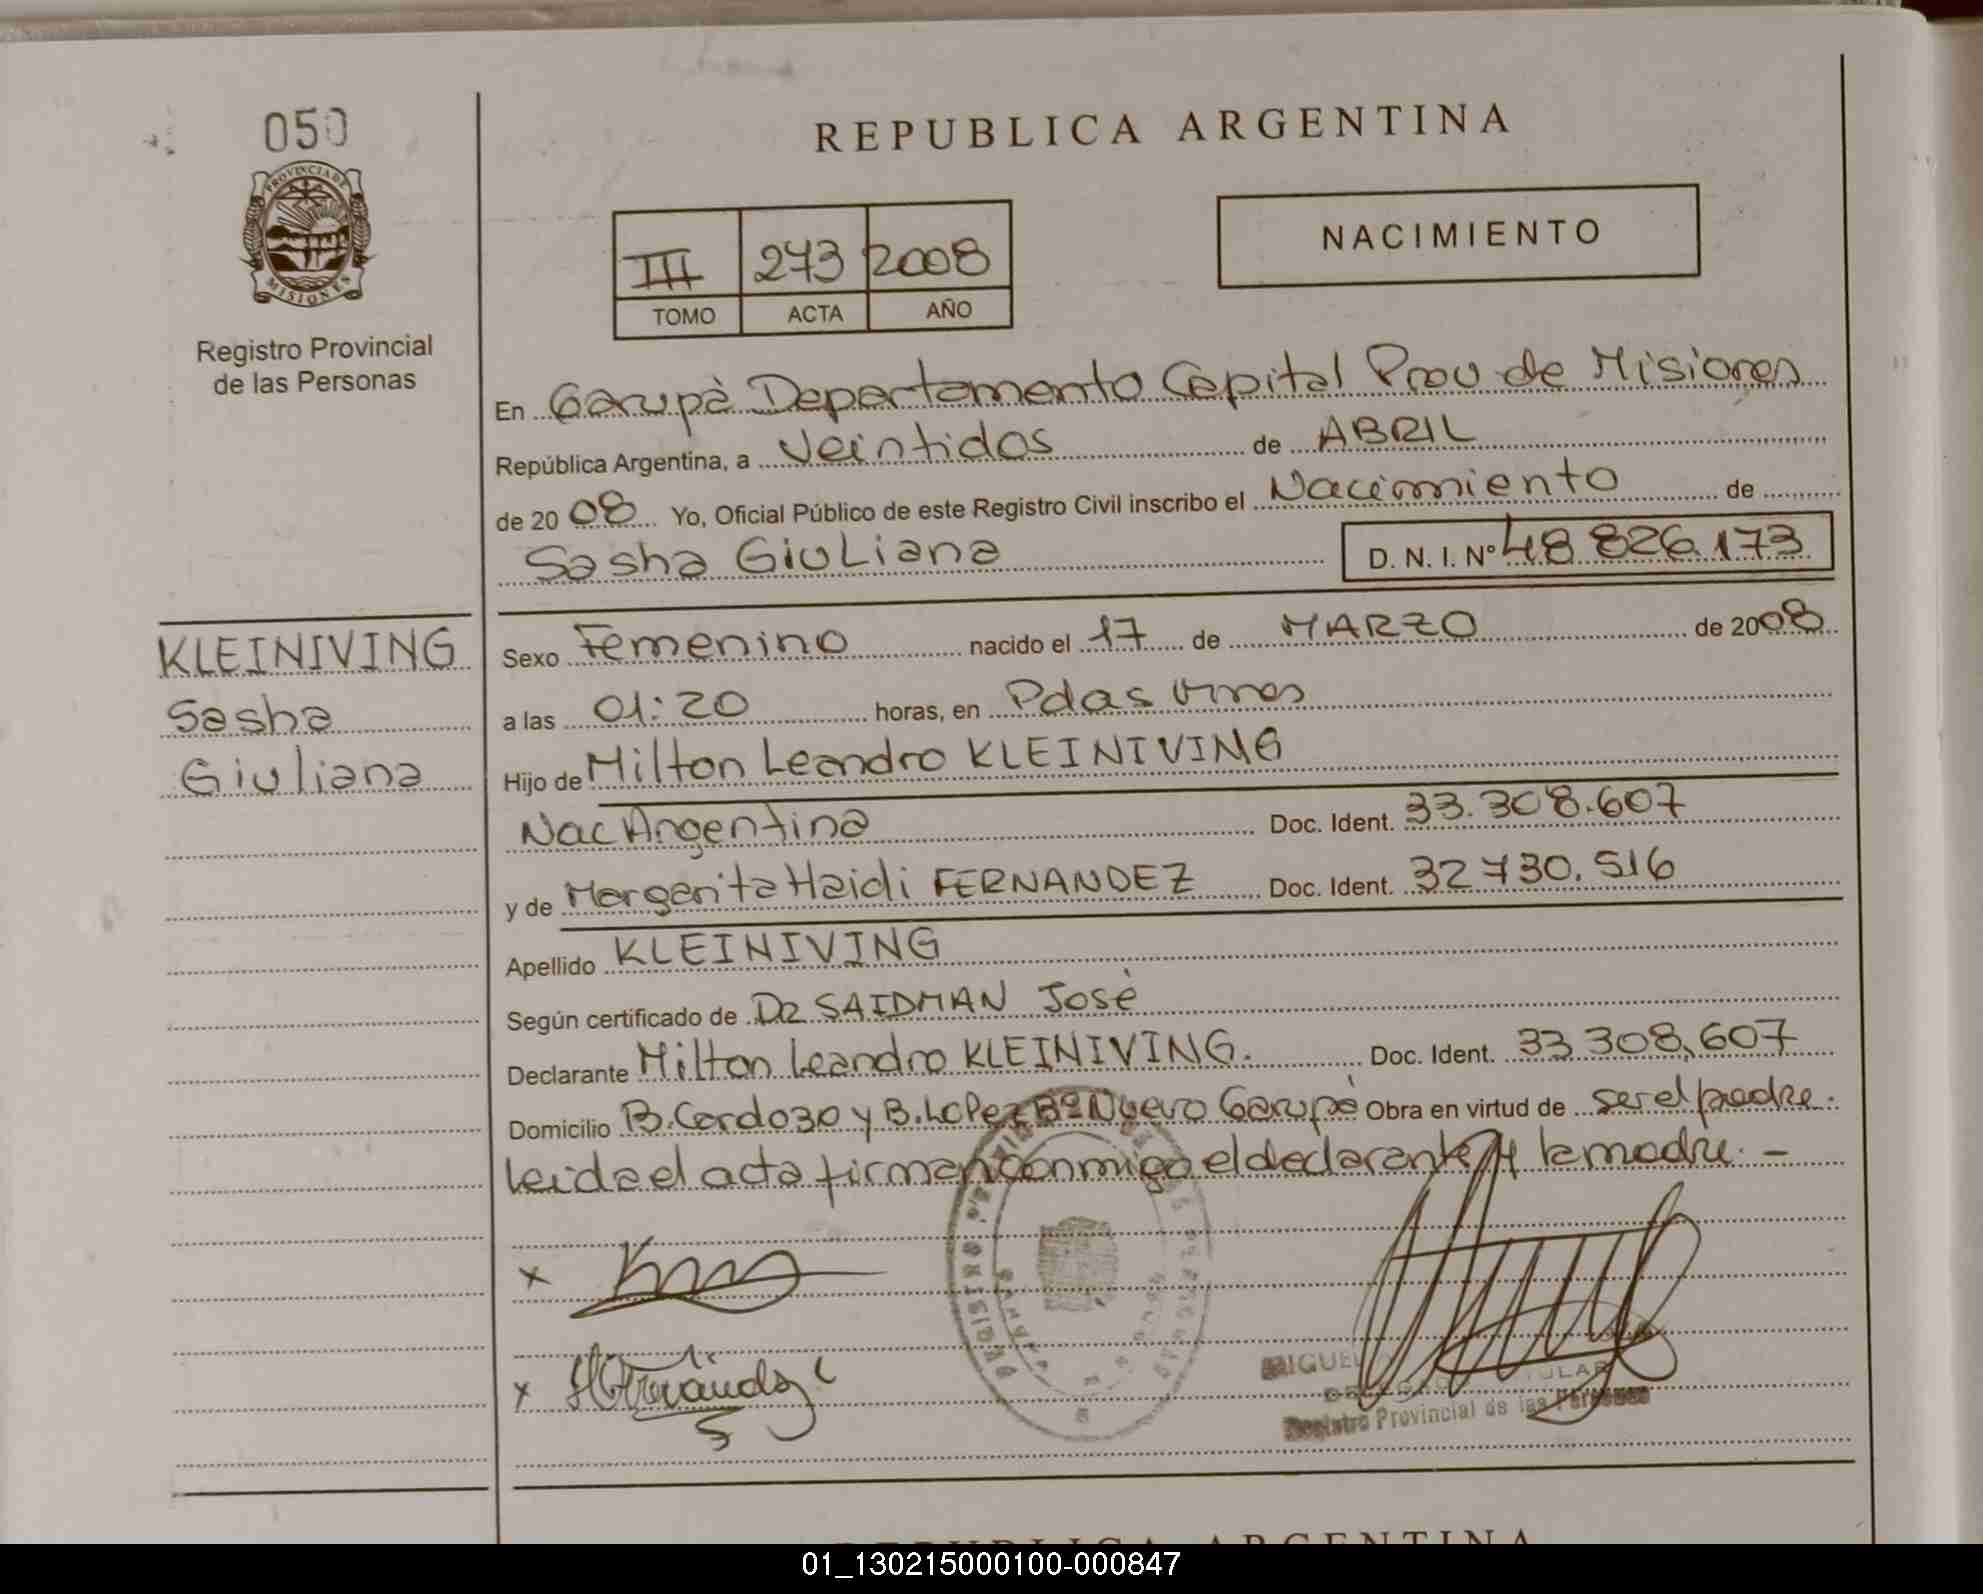 050
PROVINCIA DE
MISIONES
Registro Provincial
de las Personas
KLEINIVING
Sasha
Giuliana
REPUBLICA ARGENTINA
III 273 2008
TOMO ACTA AÑO
NACIMIENTO
En Garupà Departamento Capital Prov de Misiones
República Argentina, a Veintidos de ABRIL
de 2008 Yo, Oficial Público de este Registro Civil inscribo el Nacimiento de
Sasha GiuLiana D. N. I. Nº 48 826.173
Sexo Femenino nacido el 17 de MARZO de 2008
a las 01:20 horas, en Pdas Mnes
Hijo de Milton Leandro KLEINIVING
Nac Argentina Doc. Ident. 33.308.607
y de Margarita Haidi FERNANDEZ Doc. Ident. 32 730.516
Apellido KLEINIVING
Según certificado de DR SAIDMAN José
Declarante Milton Leandro KLEINIVING. Doc. Ident. 33 308.607
Domicilio B. Cardozo y B. LOPez Bº Nuevo Garupá Obra en virtud de ser el padre.
leida el acta firman conmigo el declarante y la madre. -
x
x
MIGUEL
Registro Provincial de las Personas
REPUBLICA ARGENTINA
01_130215000100-000847